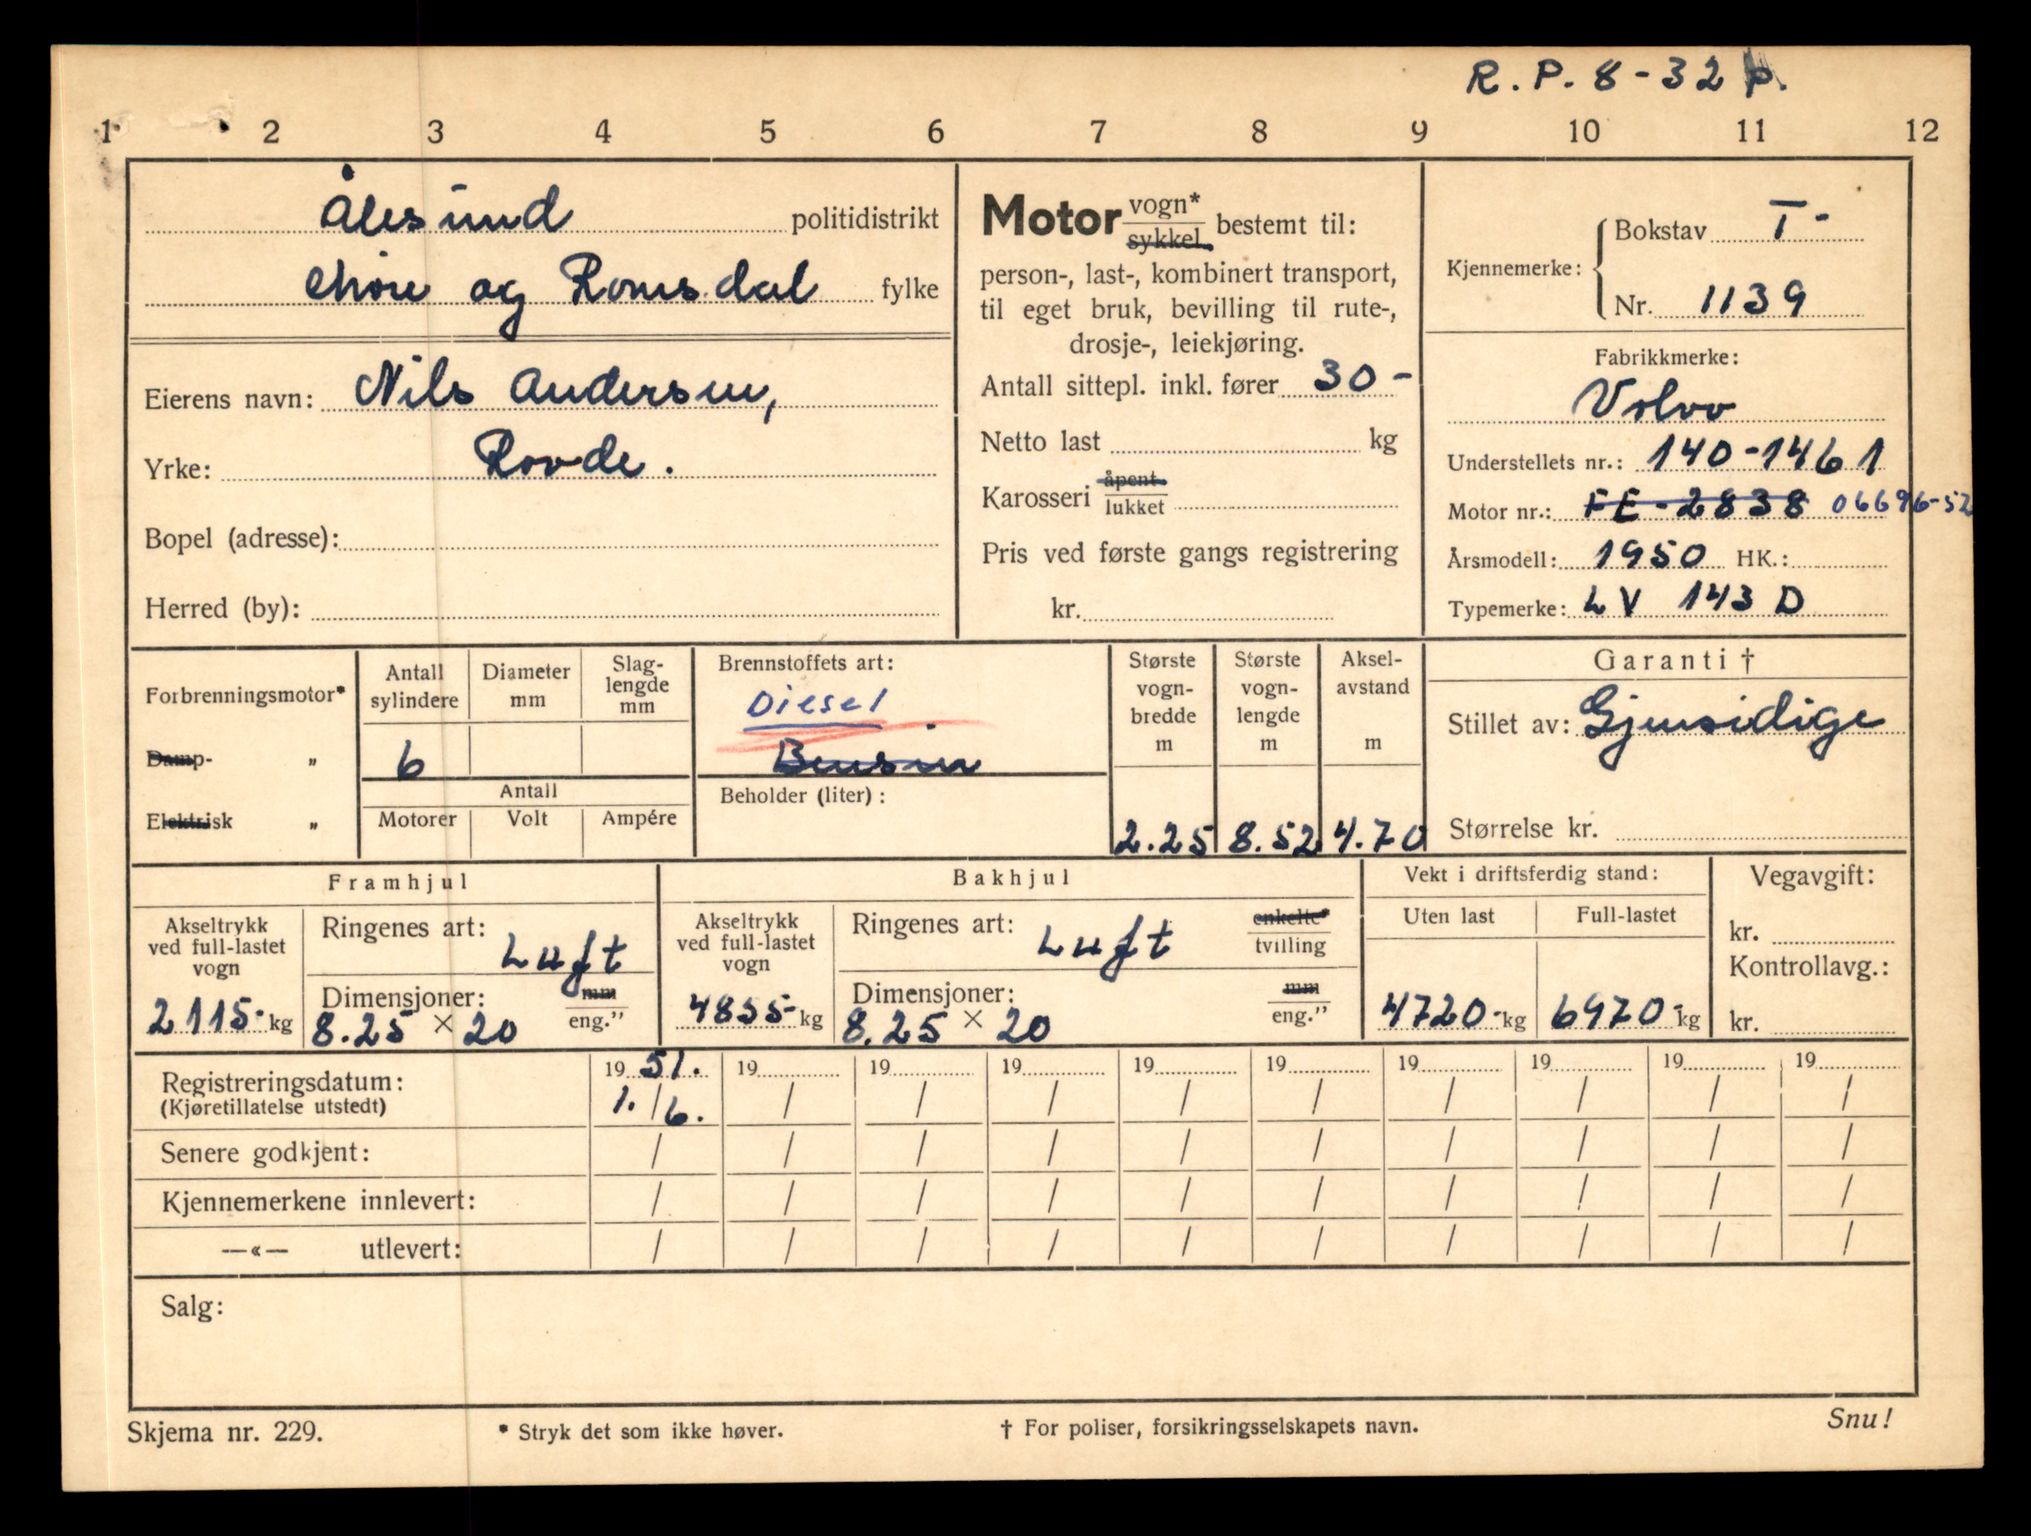 R. P. 8-32 p.
1 2 3 4 5 6 7 8 9 10 11 12
Ålesund politidistrikt
Møre og Romsdal fylke
Eierens navn: Nils Andersen,
Yrke: Rovde.
Bopel (adresse):
Herred (by):
Motor vogn* sykkel bestemt til:
person-, last-, kombinert transport,
til eget bruk, bevilling til rute-,
drosje-, leiekjøring.
Antall sittepl. inkl. fører 30-
Netto last kg
Karosseri åpent lukket
Pris ved første gangs registrering
kr.
Kjennemerke: Bokstav T-
Nr. 1139
Fabrikkmerke:
Volvo
Understellets nr.: 140-1461
Motor nr.: FE-2838 06696-52
Årsmodell: 1950 HK.:
Typemerke: LV 143 D
Forbrenningsmotor*
Damp- „
Elektrisk „
Antall sylindere
Diameter mm
Slag-lengde mm
6
Antall
Motorer Volt Ampére
Brennstoffets art:
Diesel
Bensin
Beholder (liter):
Største vogn-bredde m
2.25
Største vogn-lengde m
8.52
Aksel-avstand m
4.70
Garanti †
Stillet av: Gjensidige
Størrelse kr.
Framhjul
Akseltrykk
ved full-lastet
vogn
2115- kg
Ringenes art:
Luft
Dimensjoner: mm eng."
8.25 × 20
Bakhjul
Akseltrykk
ved full-lastet
vogn
4855- kg
Ringenes art: enkelte* tvilling
Luft
Dimensjoner: mm eng."
8.25 × 20
Vekt i driftsferdig stand:
Uten last Full-lastet
4720- kg 6970- kg
Vegavgift:
kr.
Kontrollavg.:
kr.
Registreringsdatum: 19 51. 19 19 19 19 19 19 19 19 19
(Kjøretillatelse utstedt) 1. / 6. / / / / / / / / /
Senere godkjent: / / / / / / / / / /
Kjennemerkene innlevert: / / / / / / / / / /
—«— utlevert: / / / / / / / / / /
Salg:
Skjema nr. 229. * Stryk det som ikke høver. † For poliser, forsikringsselskapets navn. Snu!